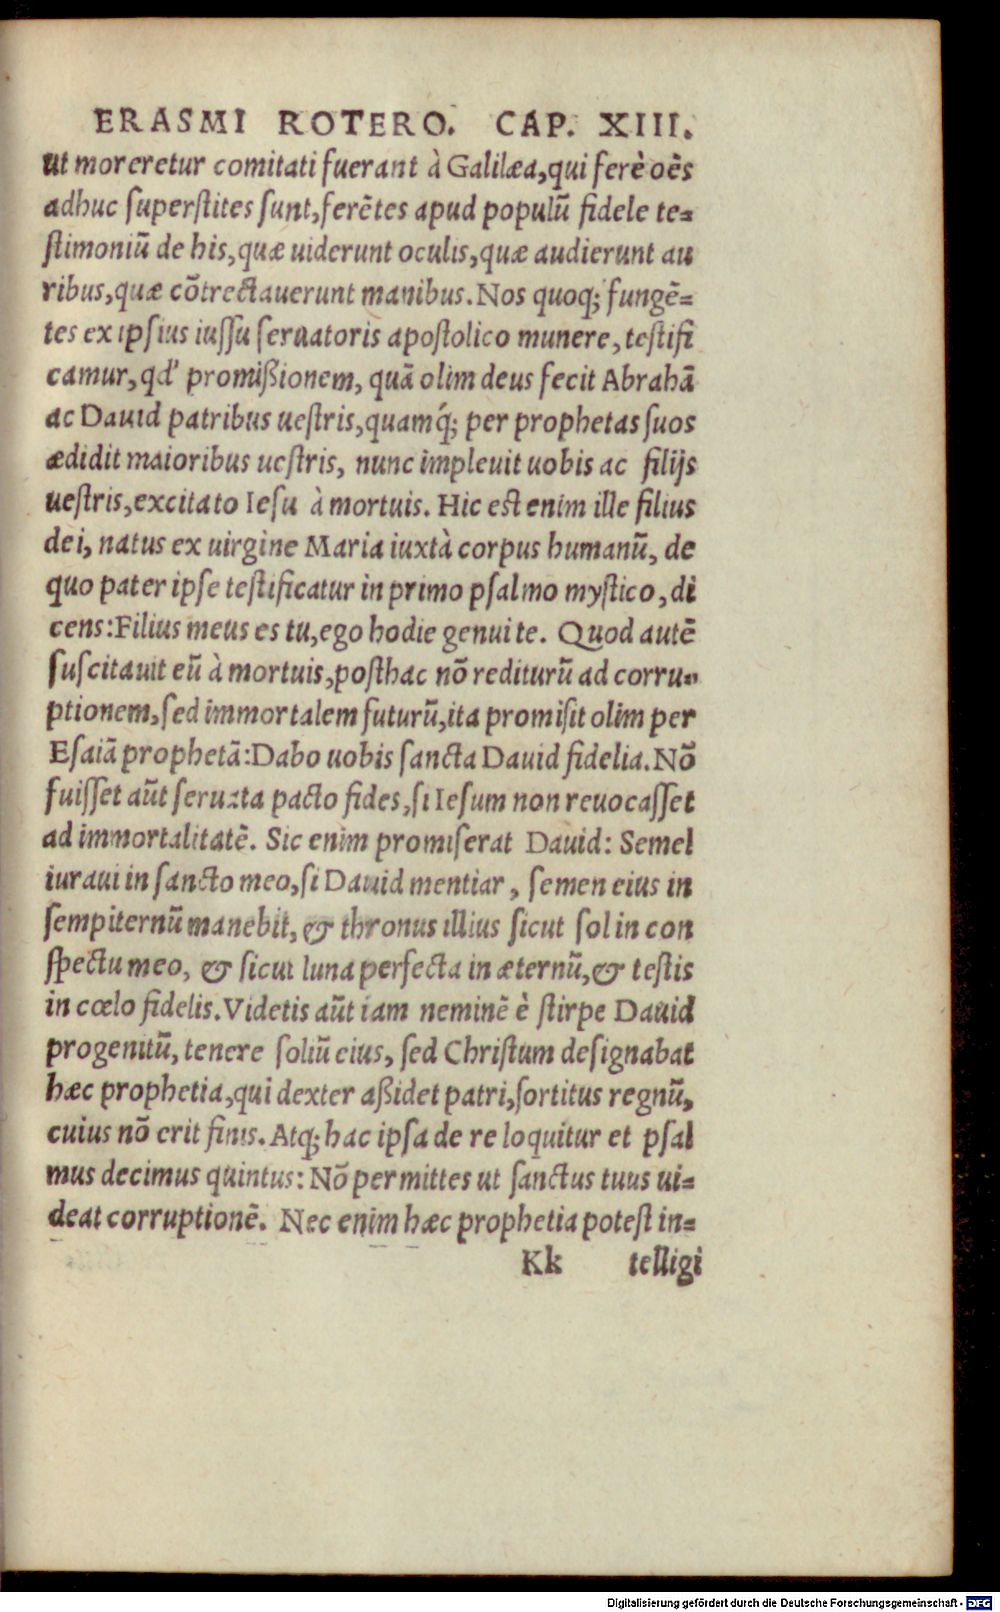 ERASMI ROTERO. CAP. XIII.
ut moreretur comitati fuerant à Galilæa, qui ferè oẽs
adhuc superstites sunt, ferẽtes apud populũ fidele te=
stimoniũ de his, quæ uiderunt oculis, quæ audierunt au
ribus, quæ cõtrectauerunt manibus. Nos quoq; fungẽ=
tes ex ipsius iussu seruatoris apostolico munere, testifi
camur, qd' promißionem, quã olim deus fecit Abrahã
ac Dauid patribus uestris, quamq́; per prophetas suos
ædidit maioribus uestris, nunc impleuit uobis ac filijs
uestris, excitato Iesu à mortuis. Hic est enim ille filius
dei, natus ex uirgine Maria iuxtà corpus humanũ, de
quo pater ipse testificatur in primo psalmo mystico, di
cens: Filius meus es tu, ego hodie genui te. Quod autẽ
suscitauit eũ à mortuis, posthac nõ rediturũ ad corru=
ptionem, sed immortalem futurũ, ita promisit olim per
Esaiã prophetã: Dabo uobis sancta Dauid fidelia. Nõ
fuisset aũt seruata pacto fides, si Iesum non reuocasset
ad immortalitatẽ. Sic enim promiserat Dauid: Semel
iuraui in sancto meo, si Dauid mentiar, semen eius in
sempiternũ manebit, & thronus illius sicut sol in con
spectu meo, & sicut luna perfecta in æternũ, & testis
in cœlo fidelis. Videtis aũt iam neminẽ è stirpe Dauid
progenitũ, tenere soliũ eius, sed Christum designabat
hæc prophetia, qui dexter aßidet patri, sortitus regnũ,
cuius nõ erit finis. Atq; hac ipsa de re loquitur et psal
mus decimus quintus: Nõ permittes ut sanctus tuus ui=
deat corruptionẽ. Nec enim hæc prophetia potest in=
Kk telligi
Digitalisierung gefördert durch die Deutsche Forschungsgemeinschaft - DFG